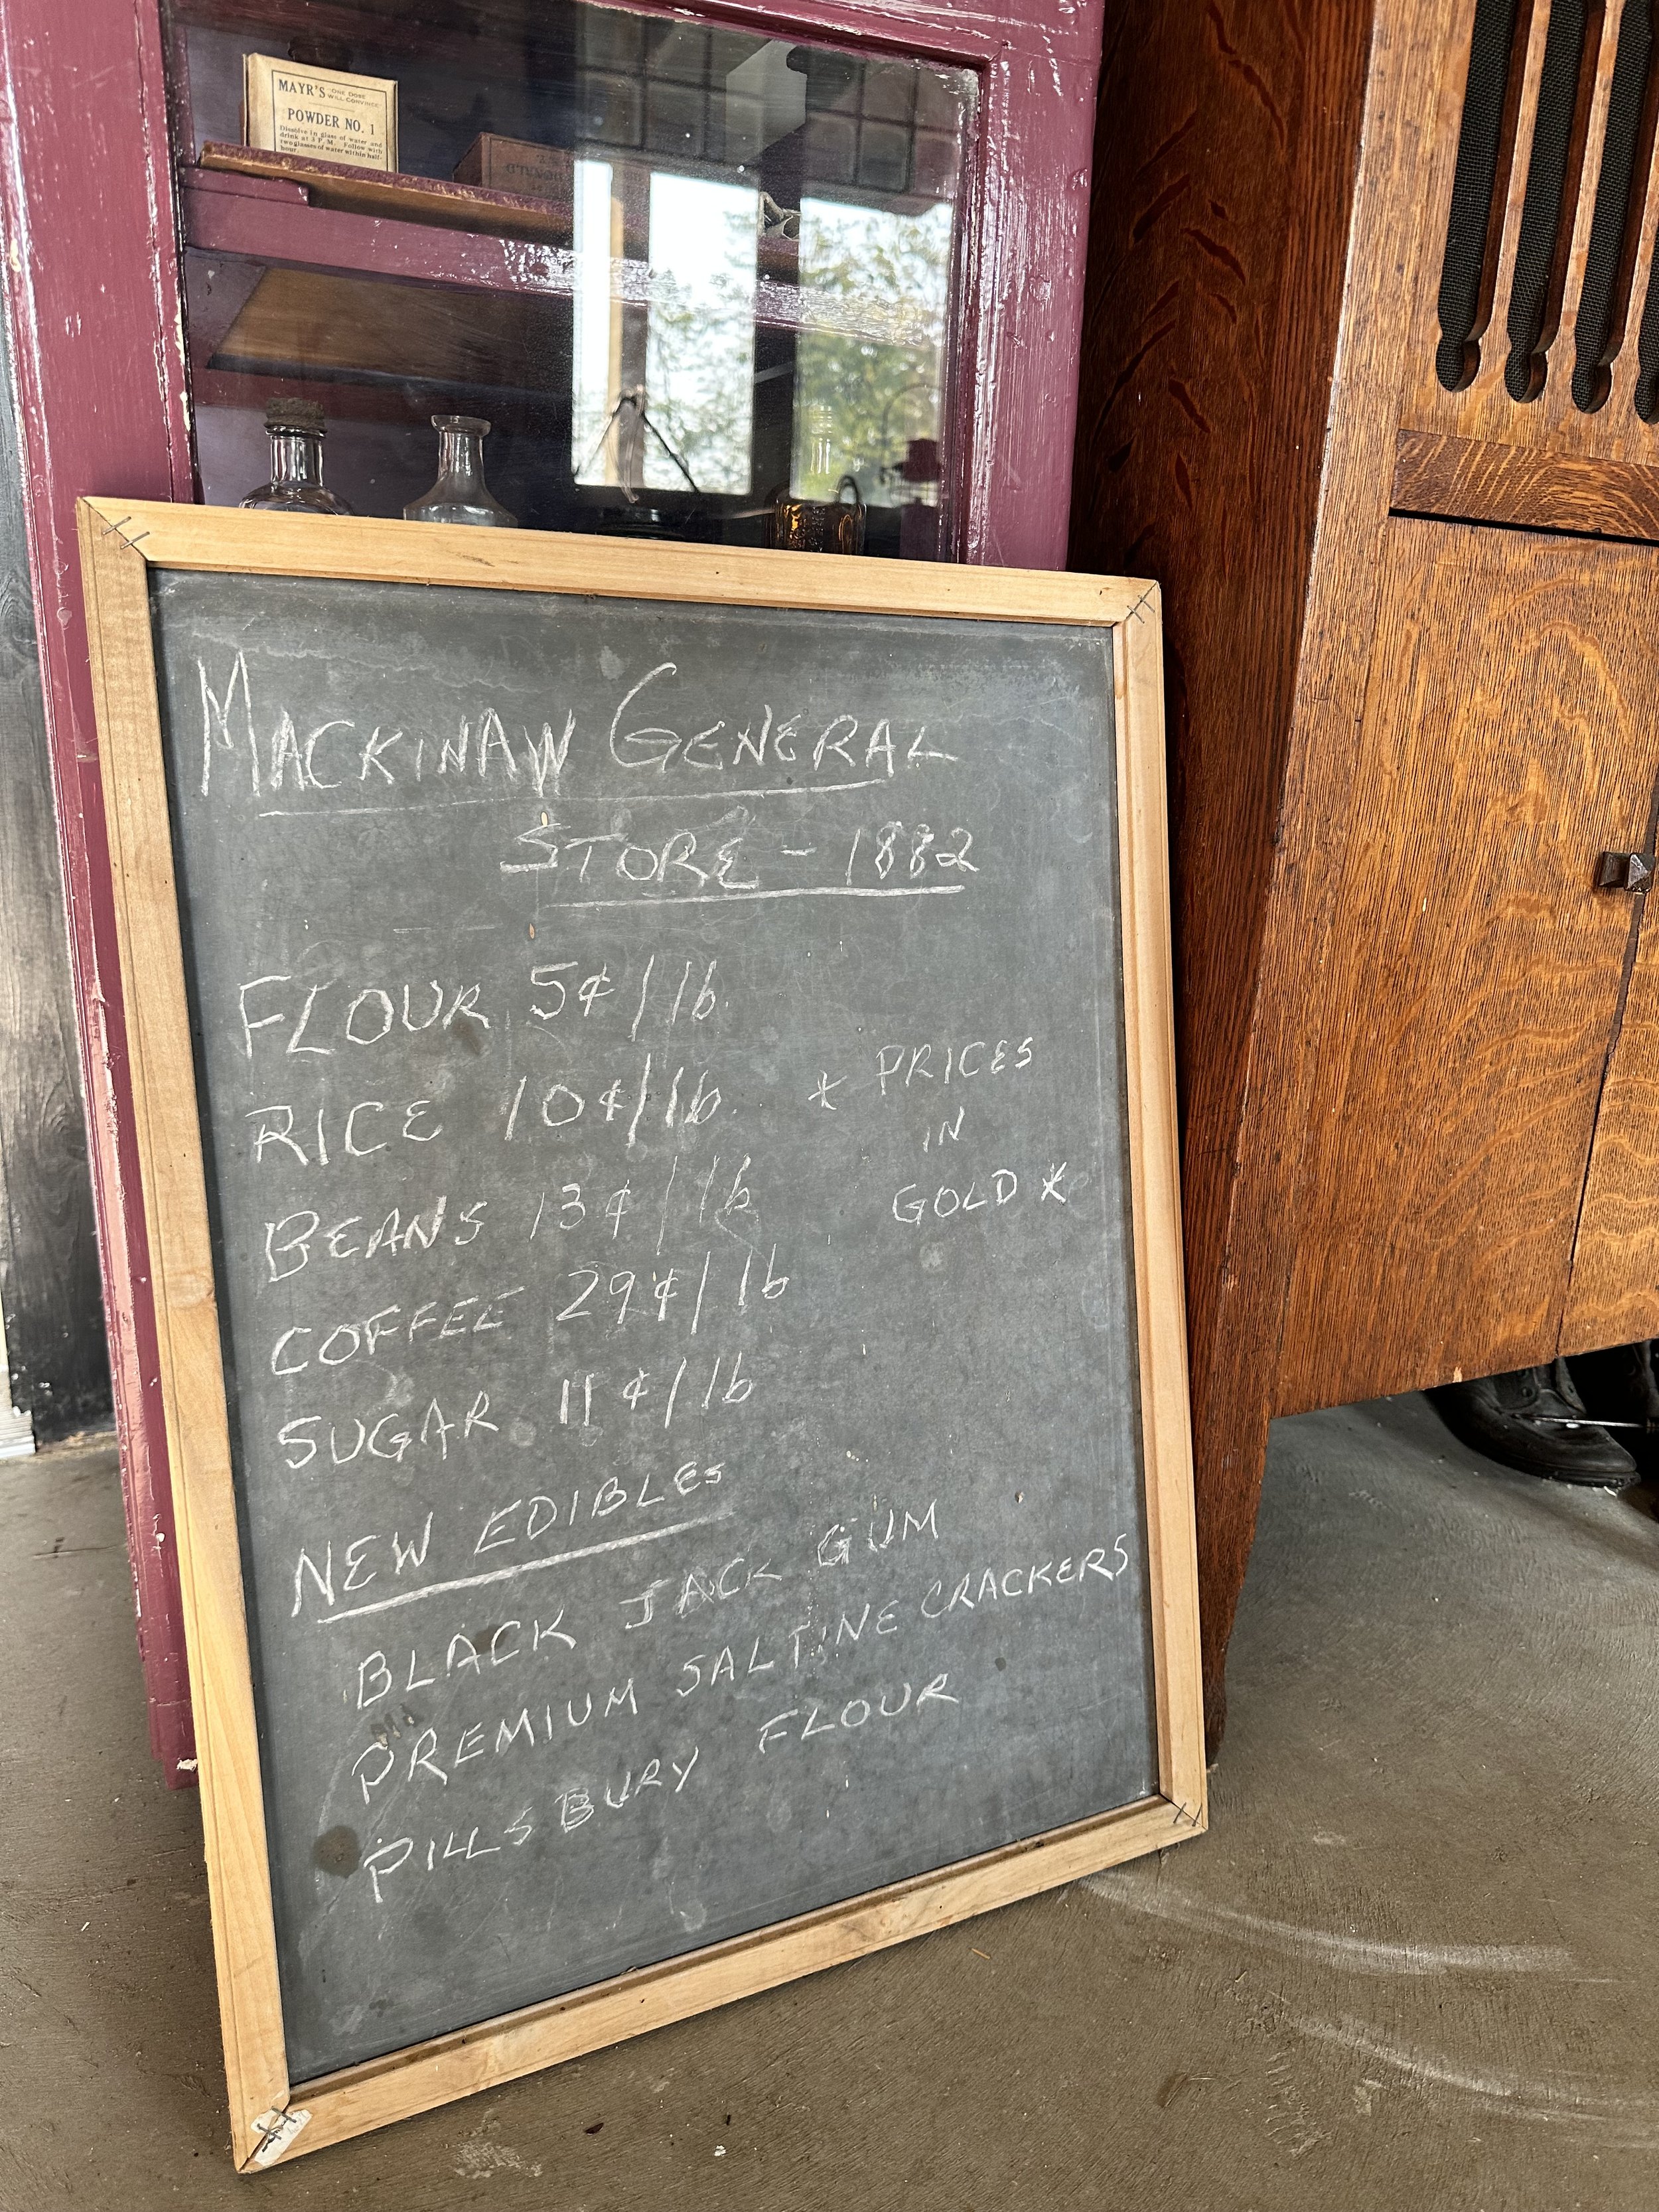 MAYR'S "ONE DOSE WILL CONVINCE"
POWDER NO. 1
Dissolve in glass of water and
drink at 3 P. M. Follow with
two glasses of water within half-
hour.
MACKINAW GENERAL
STORE - 1882
FLOUR 5¢/lb.
RICE 10¢/lb.
BEANS 13¢/lb
COFFEE 29¢/lb
SUGAR 11¢/lb
* PRICES
IN
GOLD *
NEW EDIBLES
BLACK JACK GUM
PREMIUM SALTINE CRACKERS
PILLSBURY FLOUR